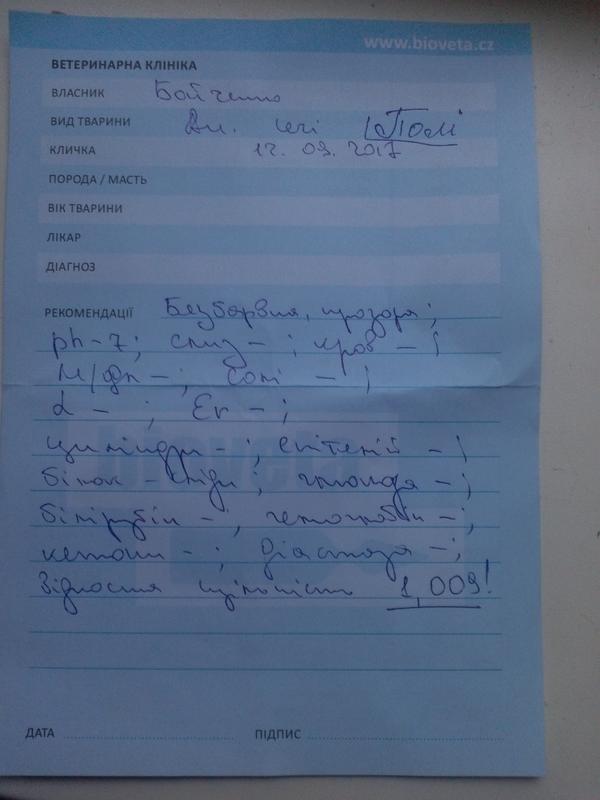 www.bioveta.cz
ВЕТЕРИНАРНА КЛІНІКА
ВЛАСНИК Бойченко
ВИД ТВАРИНИ Ан. сечі Полі
КЛИЧКА 12. 09. 2017
ПОРОДА / МАСТЬ
ВІК ТВАРИНИ
ЛІКАР
ДІАГНОЗ
РЕКОМЕНДАЦІЇ Безбарвна, прозора;
ph-7; слиз - ; кров - ;
солі - ;
L - ; Er - ;
циліндри - ; епітелій - ;
білок - сліди; глюкоза - ;
білірубін - ; гемоглобін - ;
кетони - ; діастаза - ;
Відносна щільність 1,009!
bioveta
ДАТА ПІДПИС